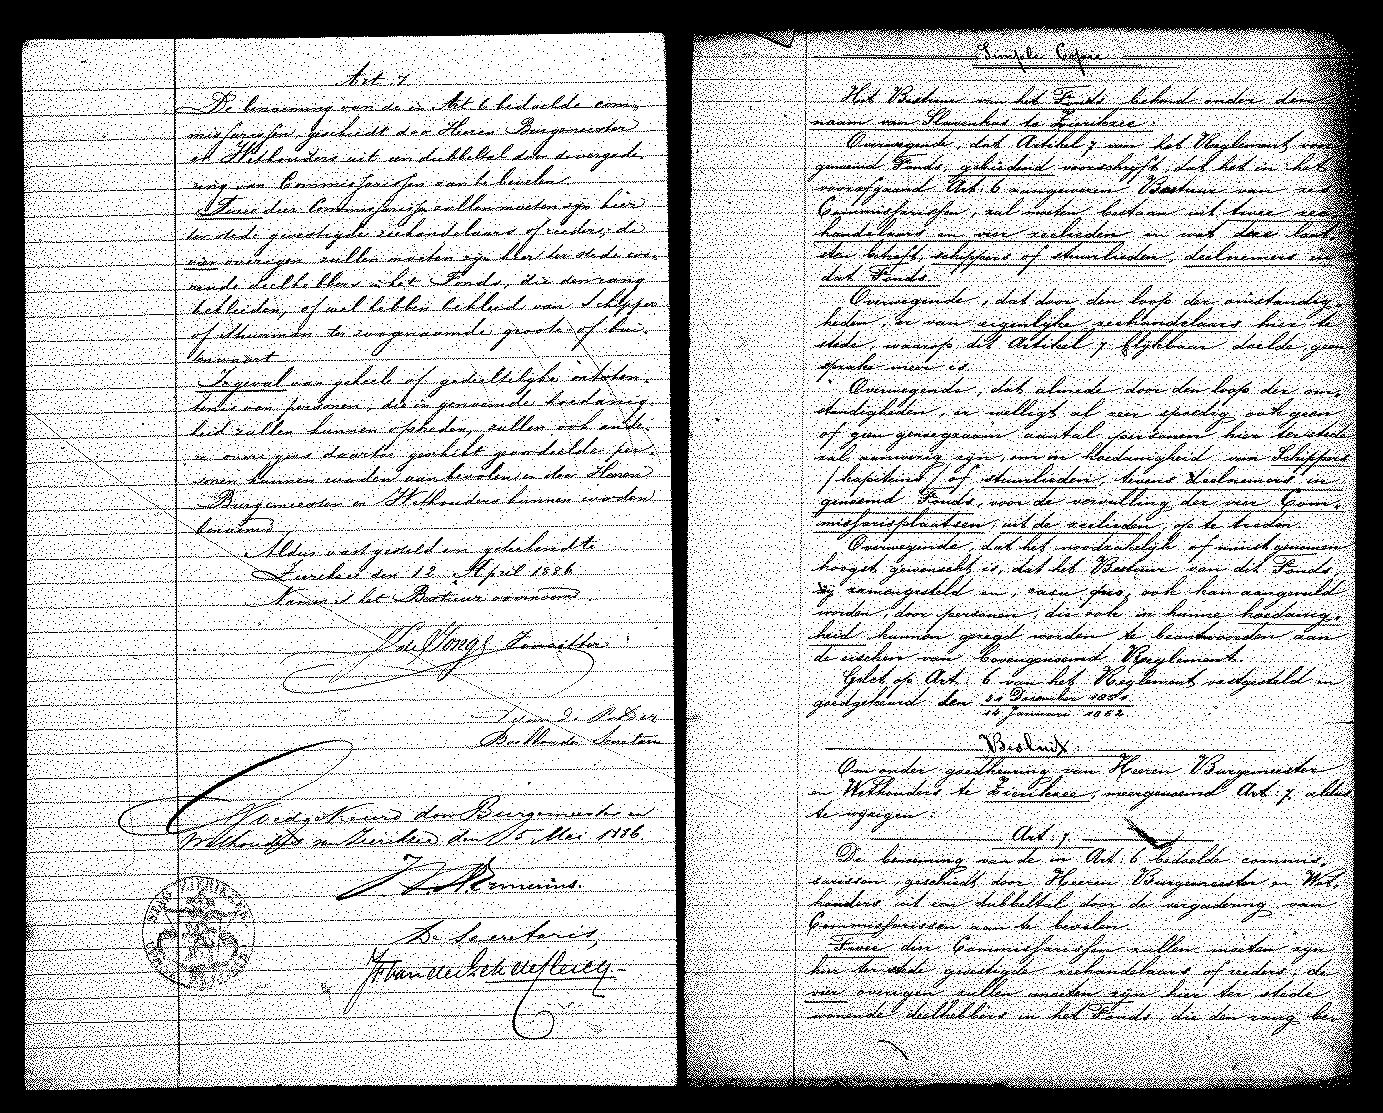 Art 7
De benoeming van de in Art 6 bedoelde com-
missarissen, geschiedt door Heeren Burgemeester
en Wethouders uit een dubbeltal door de vergade-
ring van Commissarissen aan te bevelen
Twee dier Commissarissen zullen moeten zijn hier
ter stede gevestigde zeehandelaars of reeders; de
vier overigen zullen moeten zijn hier ter stede wo-
nende deelhebbers in het Fonds, die den rang
bekleeden, of wel hebben bekleed van Schipper
of stuurman ter zoogenaamde groote of bui-
tenvaart
Ingeval van geheele of gedeeltelijke ontsten-
tenis van personen, die in genoemde hoedanig-
heid zullen kunnen optreden, zullen ook ande-
re overigens daartoe geschikt geoordeelde per-
sonen kunnen worden aanbevolen en door Heeren
Burgemeester en Wethouders kunnen worden
benoemd
Aldus vastgesteld en geteekend te
Zierikzee den 12 April 1886
Namens het Bestuur voornoemd
de Jonge Voorzitter
Boekhouder Secretaris
Goedgekeurd door Burgemeester en
Wethouders van Zierikzee den 5 Mei 1886
Ermerins.
De Secretaris,
Simple Copie
Het Bestuur van het Fonds bekend onder den
naam van Slavenkas te Zierikzee:
Overwegende, dat Artikel 7 van het Reglement van
gemeend Fonds, gebiedend voorschrijft, dat het in het
voorafgaand Art. 6 aangewezen Bestuur van zes
Commissarissen, zal moeten bestaan uit twee zee-
handelaars en vier zeelieden en wat deze laat-
sten betreft, schippers of stuurlieden, deelnemers in
dat Fonds.
Overwegende, dat door den loop der omstandig-
heden, er van eigenlijke zeehandelaars hier te
stede, waarop dit Artikel 7 blijkbaar doelde, geen
sprake meer is.
Overwegende, dat almede door den loop der om-
standigheden, er wellicht al zeer spoedig ook geen
of geen genoegzaam aantal personen hier ter stede
zal aanwezig zijn, om in hoedanigheid van Schippers
(kapiteins) of stuurlieden, tevens deelnemers in
genoemd Fonds, voor de vervulling der vier Com-
missarisplaatsen, uit de zeelieden, op te treden.
Overwegende, dat het noodzakelijk of minst genomen
hoogst gewenscht is, dat het Bestuur van dit Fonds,
zij samengesteld en, casu quo, ook kan aangevuld
worden door personen, die ook in hunne hoedanig-
heid kunnen geregd worden te beantwoorden aan
de eischen van bovengenoemd Reglement.
Gelet op Art. 6 van het Reglement vastgesteld en
goedgekeurd den 31 December 1851
14 Januari 1852
Besluit
Om onder goedkeuring van Heeren Burgemeester
en Wethouders te Zierikzee, meergenoemd Art: 7 aldus
te wijzigen:
Art: 7.
De benoeming van de in Art. 6 bedoelde commis-
sarissen geschiedt door Heeren Burgemeester en Wet-
houders uit een dubbeltal door de vergadering van
Commissarissen aan te bevelen.
Twee dier Commissarissen zullen moeten zijn
hier ter stede gevestigde zeehandelaars of reeders; de
vier overigen zullen moeten zijn hier ter stede
wonende deelhebbers in het Fonds, die den rang be-